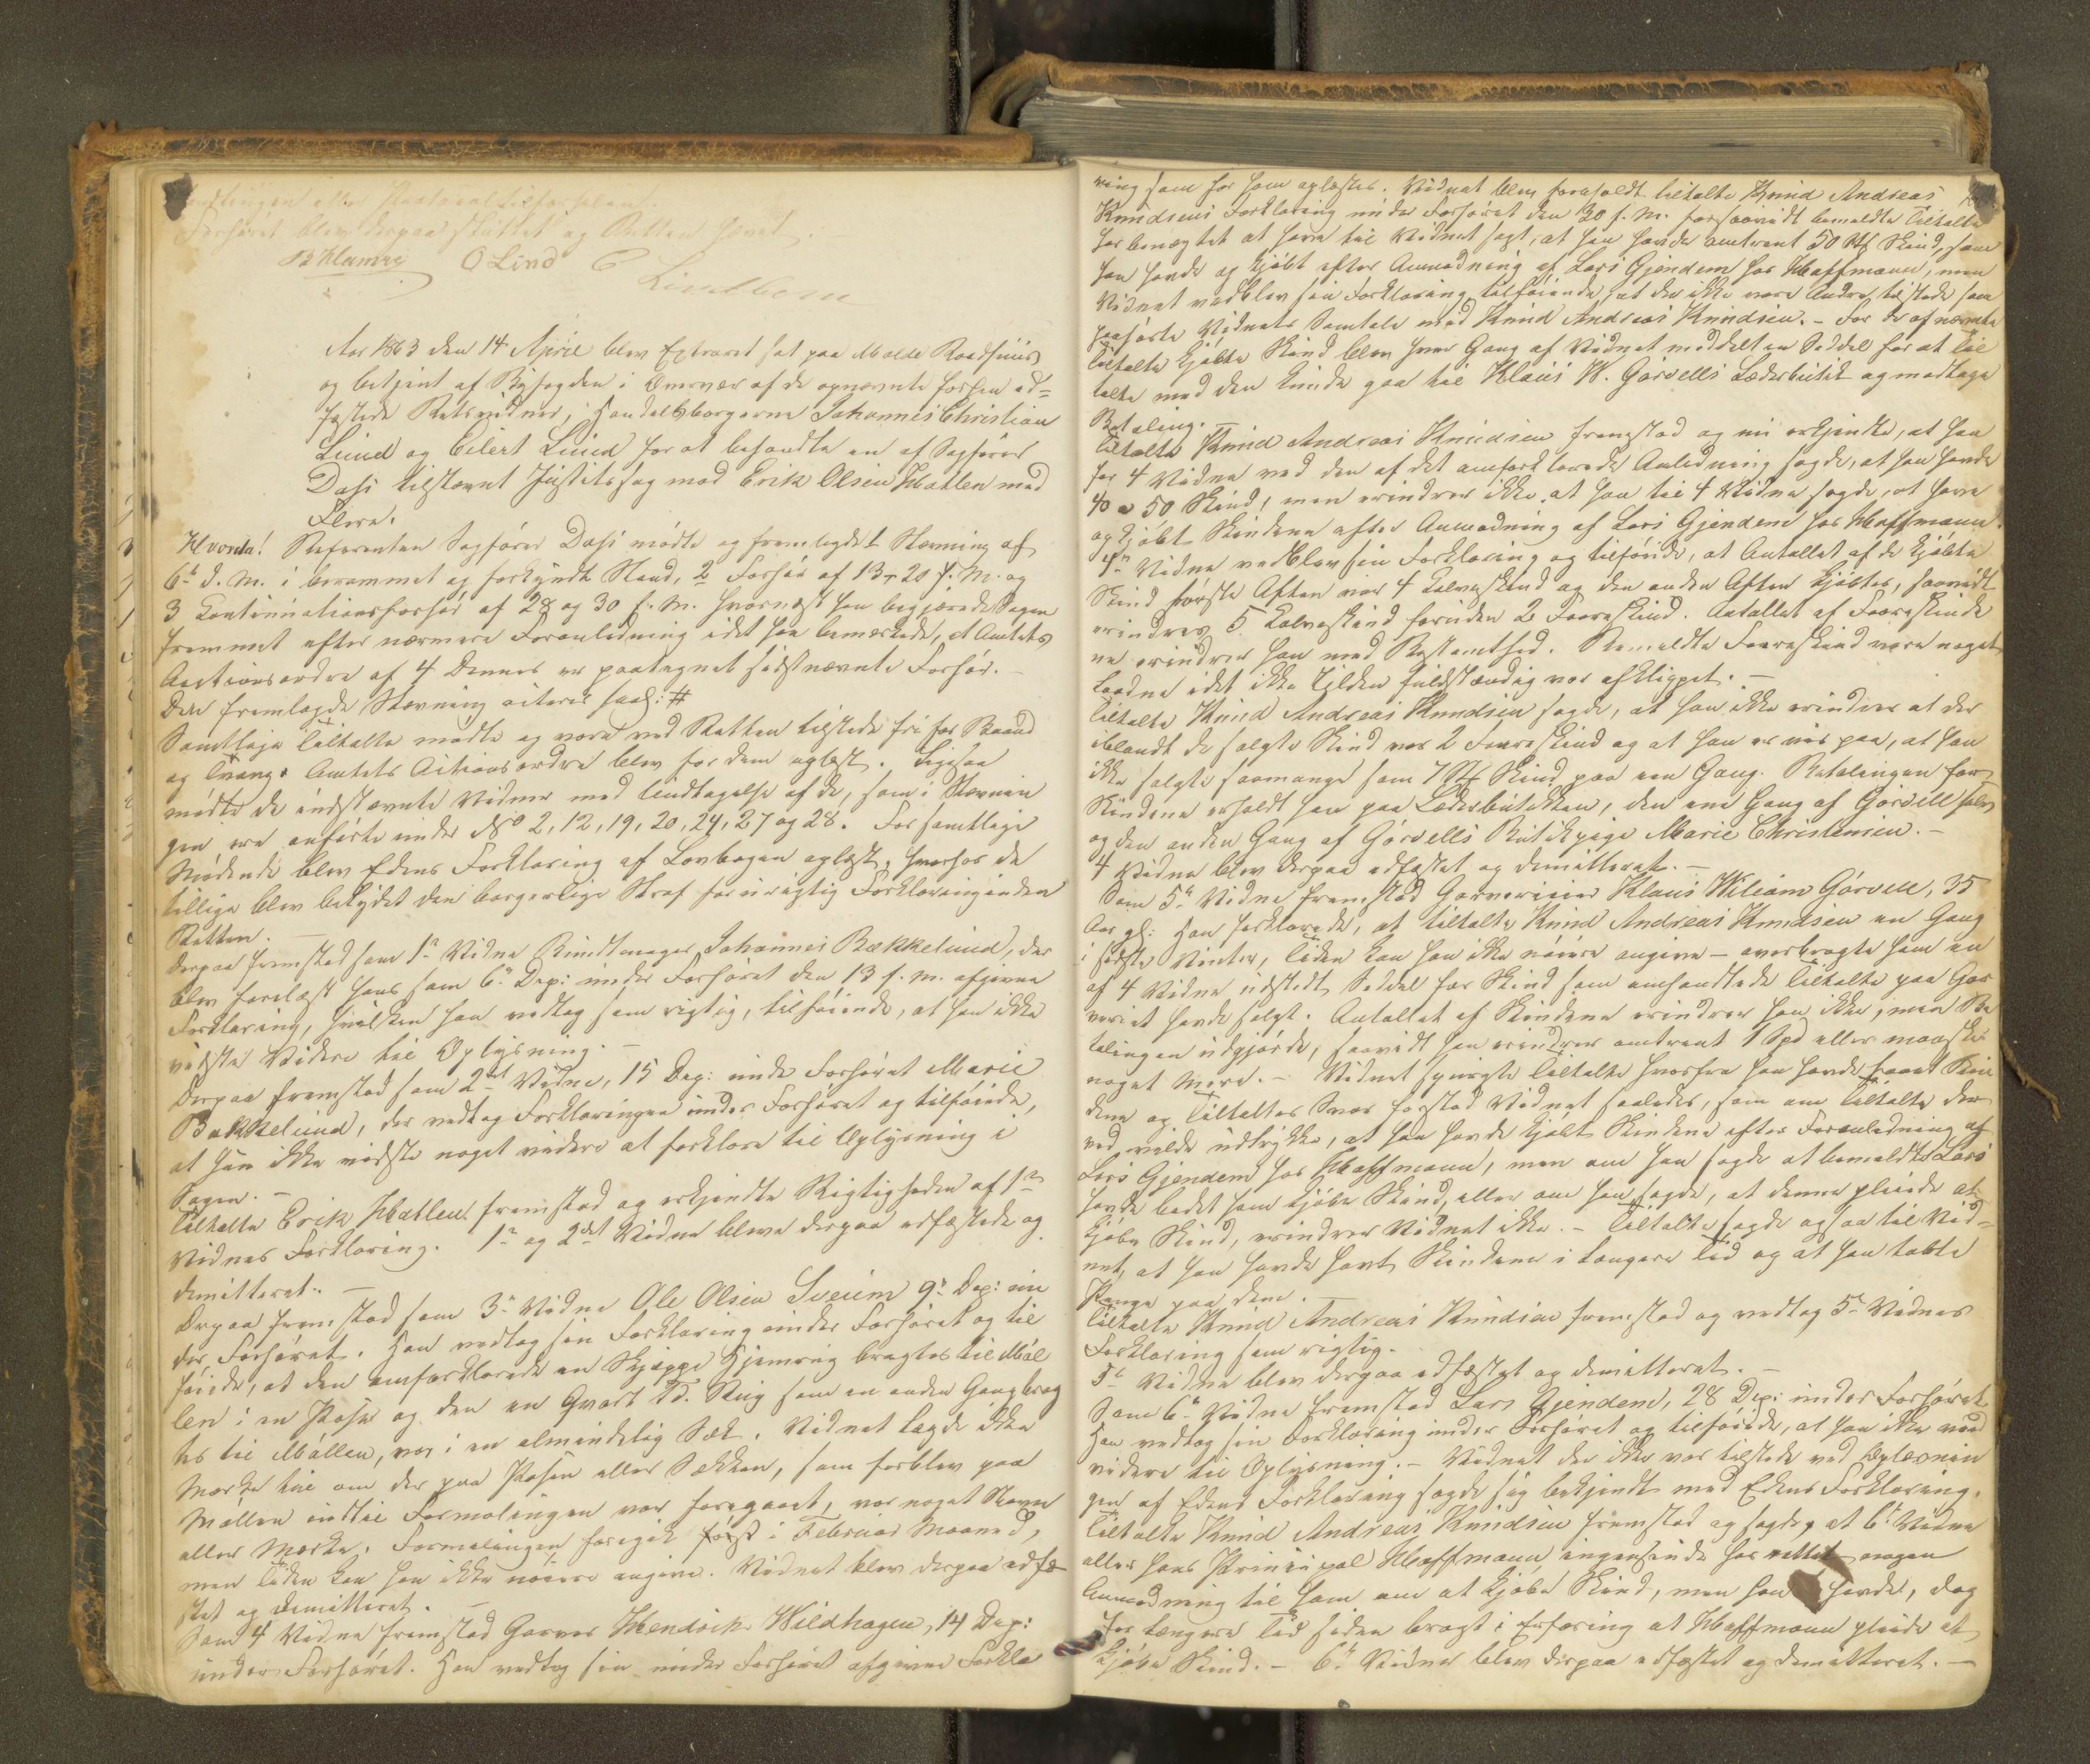 Forhøret blev derpaa sluttet og Retten hævet.
B Klumrø O Lind E
Lindbom
Aar 1863 den 14 April blev Extraret sat paa Molde Raadhuus
og betjent af Byfogden i Overvær af de opnævnte forhen ed=
fæstede Retsvidner, Handelsborgerne Johannes Christian
Lund og Eilert Lund for at behandle en af Sagfører
Dahl tilstævnt Justitssag mod Erik Olsen Hatlen med
Flere.
Hvorda! Referenten Sagfører Dahl mødte og fremlagde 1 Stævning af
6te d. M. i berammet og forkyndt Stand, 2 Forhør af 13 - 20 f. M. og
3 Continuationsforhør af 28 og 30 f. M. hvornæst han begjærede Sagen
fremmet efter nærmere Foranledning idet han bemærkede, at Amtets
Actionsordre af 4 Dennes er paategnet sidstnævnte Forhør.
Den fremlagde Stævning acteres saal: #
Samtlige Tiltalte mødte og vare ved Retten tilstede fri for Baand
og Tvang. Amtets Actionsordre blev for dem oplæst. Ligesaa
mødte de indstævnte Vidner med Undtagelse af de, som i Stævnin
gen ere anførte under No 2, 12, 19, 20, 24, 27 og 28. For samtlige
Mødende blev Edens Forklaring af Lovbogen oplæst, hvorhos de
tillige blev betydet den borgerlige Straf for urigtig Forklaring inden
Retten.
Derpaa fremstod som 1te Vidne Bundtmager Johannes Bækkelund, der
blev forelæst hans som 6te Dep: under Forhøret den 13 f. m. afgivne
Forklaring, hvilken han vedtog som rigtig, tilføiende, at han ikke
vidste Videre til Oplysning. —
Derpaa fremstod som 2det Vidne, 15 Dep: under Forhøret Marie
Bækkelund, der vedtog Forklaringen under Forhøret og tilføiede,
at hun ikke vidste noget videre at forklare til Oplysning i
Sagen. —
Tiltalte Erik Hatlen fremstod og erkjendte Rigtigheden af 1te
Vidnes Forklaring. 1te og 2det Vidne bleve derpaa edfæstede og
demitteret. —
Derpaa fremstod som 3die Vidne Ole Olsen Sveium 9de Dep: un
der Forhøret. Han vedtog sin Forklaring under Forhøret og til
føiede, at den omforklarede en Skjeppe Hjemrug bragtes til Møl
len i en Pose og den en Qvart Td. Rug som en anden Gang brag
tes til Møllen, var i en almindelig Sæk. Vidnet lagde ikke
Mærke til om der paa Posen eller Sækken, som forblev paa
Møllen indtil Formalingen var foregaaet, var noget Navn
eller Mærke. Formalingen foregik først i Februar Maaned,
men Tiden kan han ikke nøiere angive. Vidnet blev derpaa edfæ
stet og demitteret. —
Som 4 Vidne fremstod Garver Hendrik Wildhagen, 14 Dep:
under Forhøret. Han vedtog sin under Forhøret afgivne Forkla
ring som for ham oplæstes. Vidnet blev foreholdt tiltalte Knud Andreas
Knudsens Forklaring under Forhøret den 30 f. M. forsaavidt bemeldte Tiltalte
har benægtet at have til Vidnet sagt, at han havde omtrent 50 Stk Skind, som
han havde opkjøbt efter Anmodning af Lars Gjendem hos Hoffmann, men
Vidnet vedblev sin Forklaring tilføiende, at der ikke vare Andre tilstede som
paahørte Vidnets Samtale med Knud Andreas Knudsen. - For de af nævnte
Tiltalte kjøbte Skind blev hver Gang af Vidnet meddelt en Seddel for at Til
talte med den kunde gaa til Klaus W. Gørvells Læderbutik og modtage
Betaling. —
Tiltalte Knud Andreas Knudsen fremstod og nu erkjendte, at han
for 4 Vidne ved den af det omforklarede Anledning sagde, at han havde
40 a 50 Skind, men erindrer ikke at han til 4 Vidne sagde, at have
opkjøbt Skindene efter Anmodning af Lars Gjendem hos Hoffmann.
4de Vidne vedblev sin Forklaring og tilføiede, at Antallet af de kjøbte
Skind første Aften var 4 Kalveskind og den anden Aften kjøbtes, saavidt
erindres 5 Kalveskind foruden 2 Faareskind. Antallet af Faareskinde
ne erindrer han med Bestemthed. Bemeldte Faareskind vare noget
laadne idet ikke Ulden fuldstændig var afklippet. —
Tiltalte Knud Andreas Knudsen sagde, at han ikke erindrer at der
iblandt de solgte Skind var 2 Faareskind og at han er vis paa, at han
ikke solgte saamange som 7 Stk Skind paa een Gang. Betalingen for
Skindene erholdt han paa Læderbutikken, den ene Gang af Gørvell selv
og den anden Gang af Gørvells Butikpige Marie Christensen. —
4 Vidne blev derpaa edfæstet og demitteret. —
Som 5te Vidne fremstod Garversvend Klaus William Gørvell, 35
Aar gl: Han forklarede, at tiltalte Knud Andreas Knudsen en Gang
i sidste Vinter, Tiden kan han ikke nøiere angive — overbragte ham en
af 4 Vidne udstedt Seddel for Skind som omhandlede Tiltalte paa Gar
veriet havde solgt. Antallet af Skindene erindrer han ikke, men Be
talingen udgjorde, saavidt han erindrer omtrent 1 Spd eller maaske
noget mere. - Vidnet spurgte Tiltalte hvorfra han havde faaet Skin
dene og Tiltaltes Svar forstod Vidnet saaledes, som om Tiltalte der
ved vilde udtrykke, at han havde kjøbt Skindene efter Foranledning af
Lars Gjendem hos Hoffmann, men om han sagde at bemeldte Lars
havde bedet ham kjøbe Skind, eller om han sagde, at denne pleiede at
kjøbe Skind, erindrer Vidnet ikke. - Tiltalte sagde ogsaa til Vid=
net, at han havde havt Skindene i længere Tid og at han tabte
Penge paa dem. —
Tiltalte Knud Andreas Knudsen fremstod og vedtog 5te Vidnes
Forklaring som rigtig.
5te Vidne blev derpaa edfæstet og demitteret. —
Som 6te Vidne fremstod Lars Gjendem, 28 Dep: under Forhøret
Han vedtog sin Forklaring under Forhøret og tilføiede, at han ikke veed
videre til Oplysning. - Vidnet der ikke var tilstede ved Oplæsnin
gen af Edens Forklaring sagde sig bekjendt med Edens Forklaring.
Tiltalte Knud Andreas Knudsen fremstod og sagde, at 6te Vidne
eller hans Principal Hoffmann ingensinde har rettet nogen
Anmodning til ham om at kjøbe Skind, men han havde, dog
for længere Tid siden bragt i Erfaring at Hoffmann pleiede at
kjøbe Skind. - 6te Vidne blev derpaa edfæstet og demitteret. —